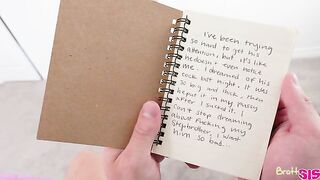 I've been trying
so hard to get his
attention, but it's like
he doesn't even notice
me. I dreamed of his
cock last night. It was
so big and thick, then
he put it in my pussy
after I sucked it. I
can't stop dreaming
about fucking my
Stepbrother. I want
him so bad...
Bratty
SIS